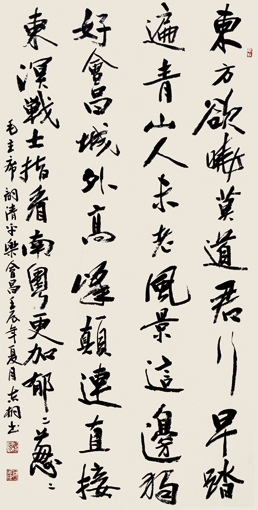 東方欲曉莫道君行早踏
遍青山人未老風景這邊獨
好會昌城外高峰顛連直接
東溟戰士指看南粵更加郁〻葱〻
毛主席詞清平樂會昌壬辰年夏月